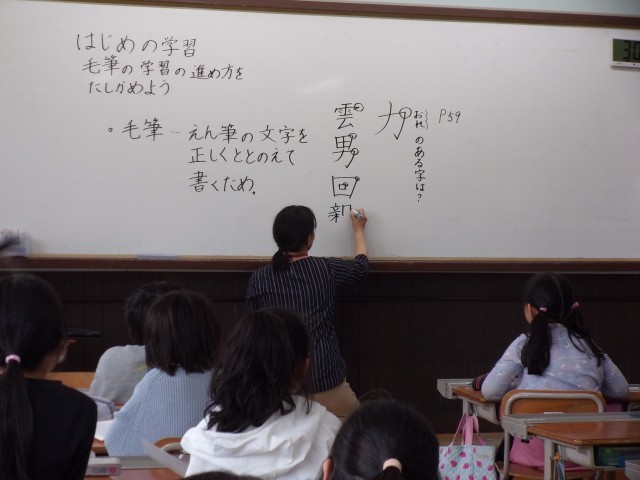 はじめの学習
毛筆の学習の進め方を
たしかめよう
。毛筆…えん筆の文字を
正しくととのえて
書くため。
雲男回新
力
おれ
のある字は?
P59
30